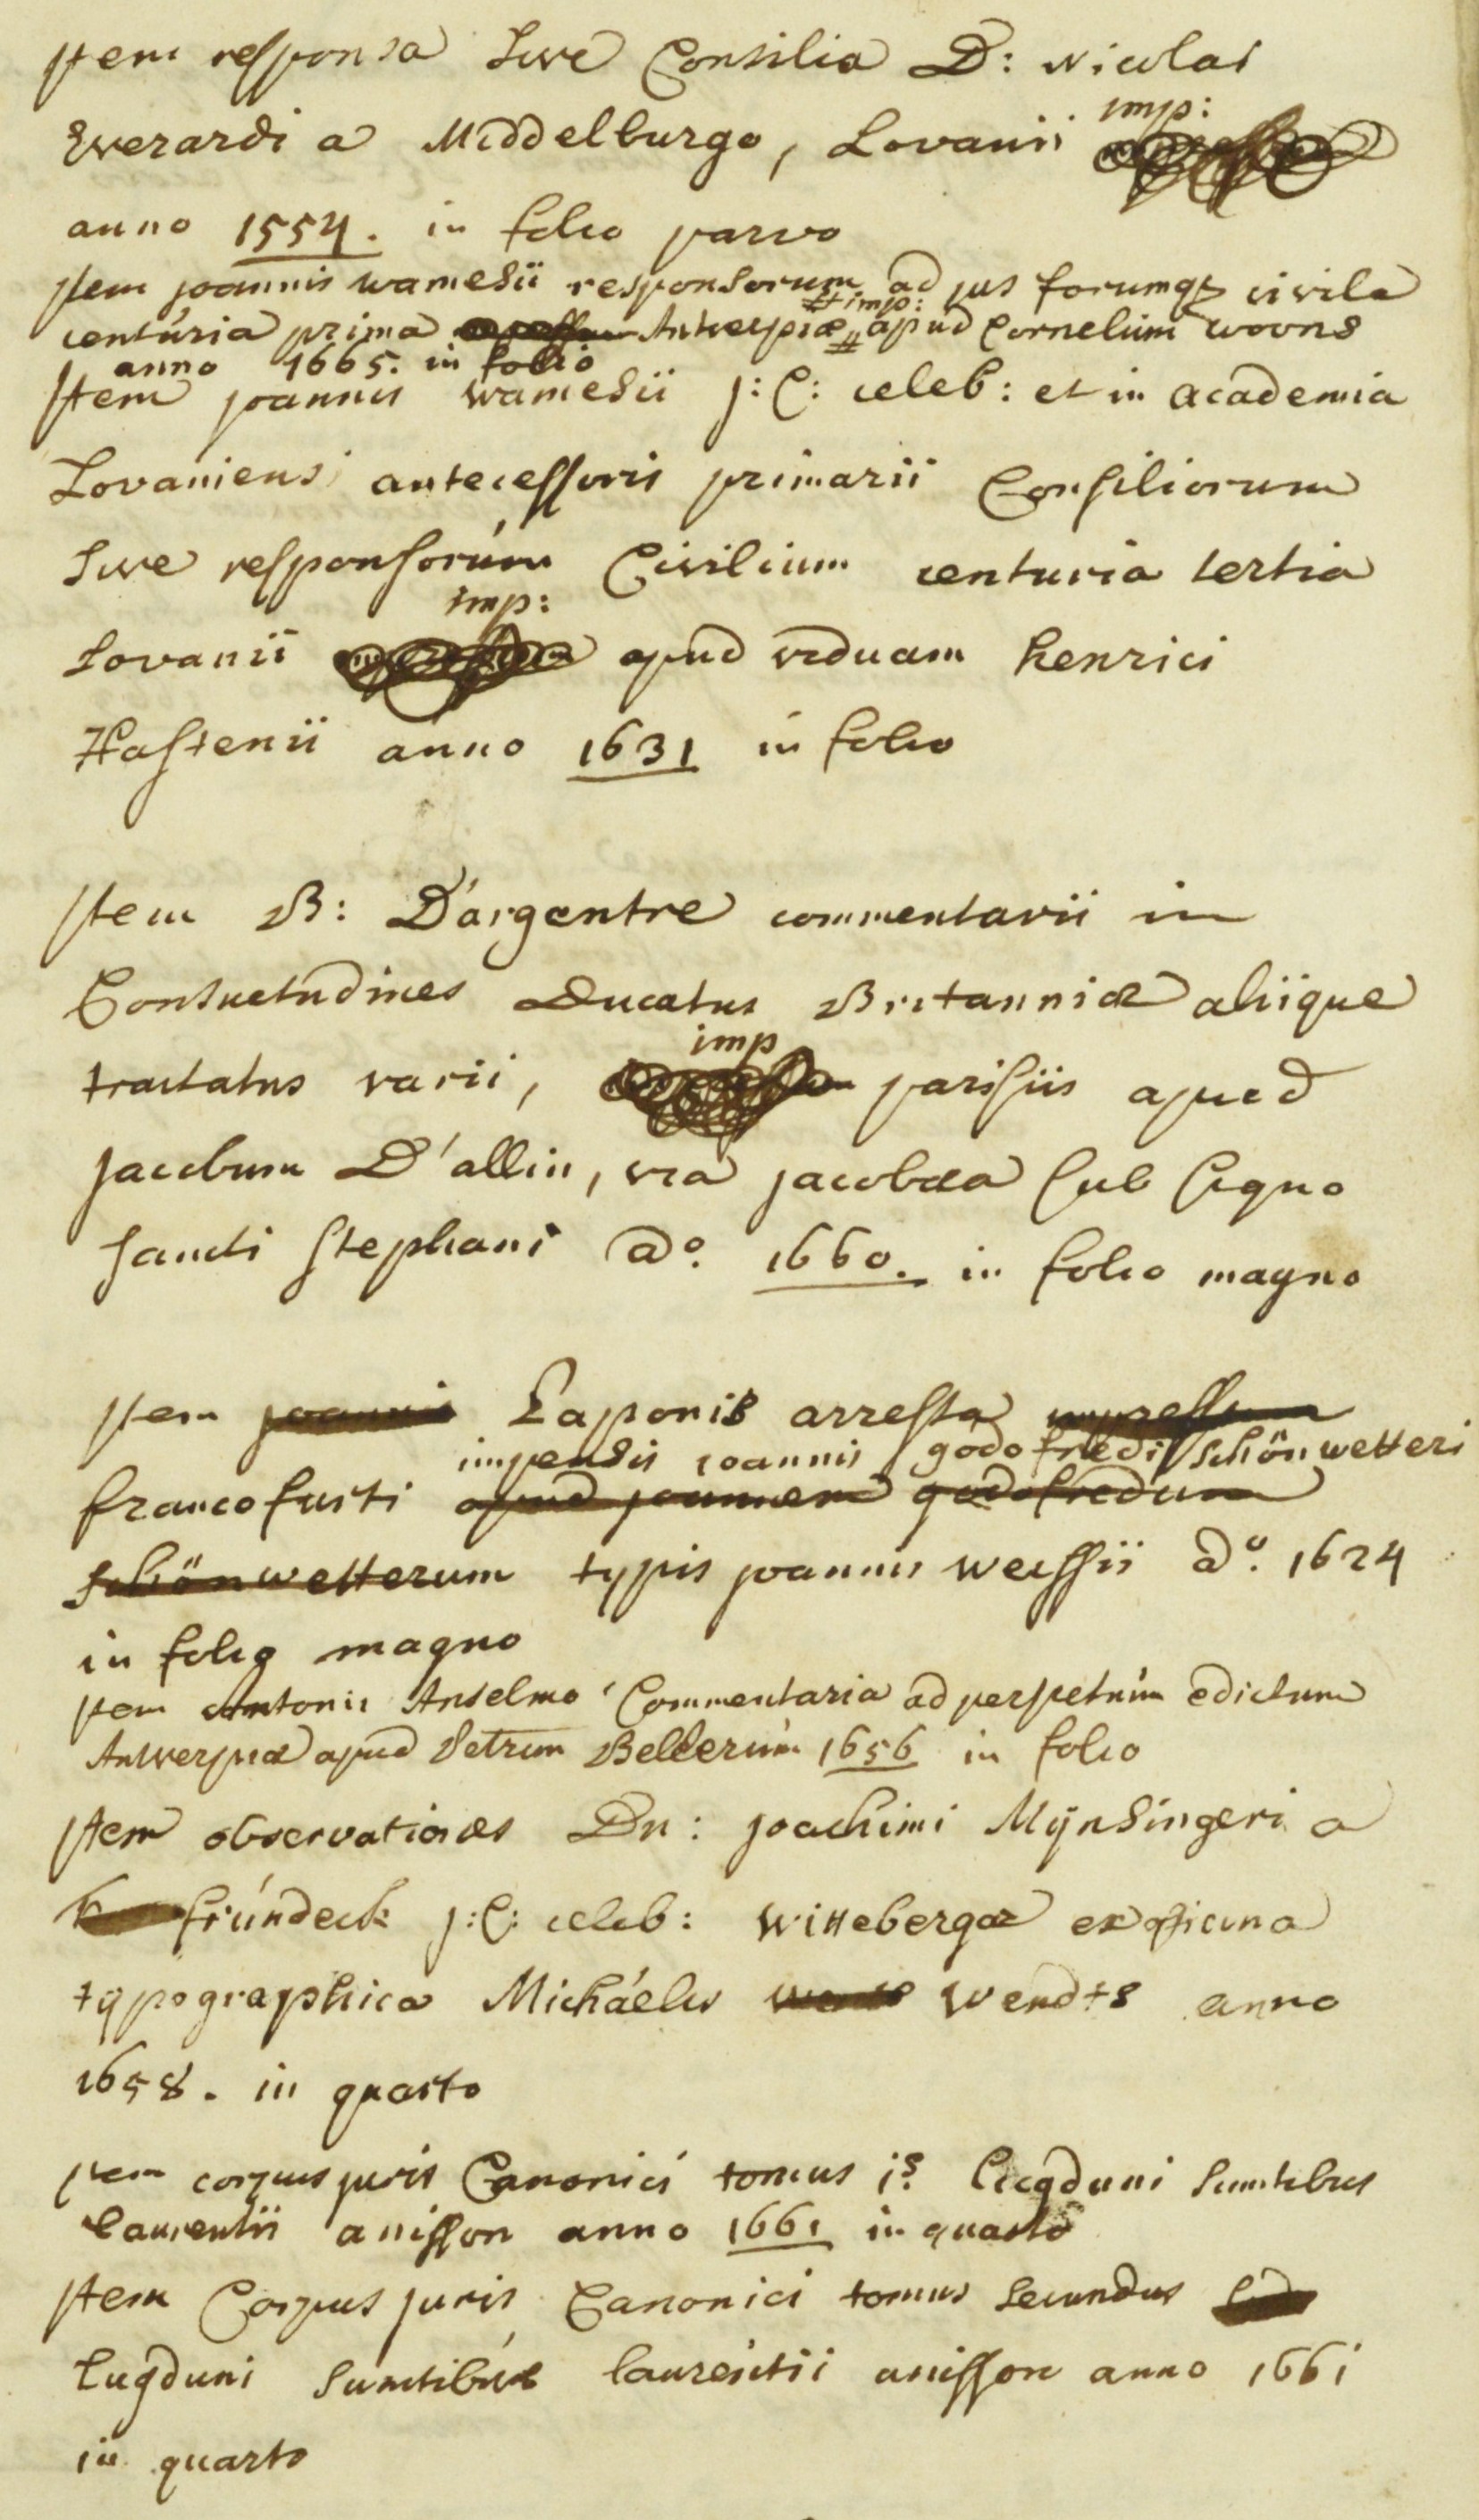 Item responsa sive Consilia D: Nicolai
imp:
Everardi a Middelburgo, Lovanii
anno 1554. in folio parvo
Item joannis wamesii responsorum ad jus forumq3 civile
imp:
centuria prima Antverpiæ apud Cornelium woons
anno 1665. in folio
Item joannis wamesii j: C: celeb: et in academia
Lovaniensi antecessoris primarii Consiliorum
sive responsorúm Civilium centuria tertia
imp:
Lovanii apud viduam henrici
Hastenii anno 1631 in folio
Item B: D'argentre commentarii in
Consuetudines Ducatus Britanniæ aliique
imp
tractatus varii, parisiis apud
jacobum D'allin, via jacobæa sub signo
sancti stephani ao. 1660. in folio magno
Item joannis Paponis arresta impressum
impensis joannis godofredi schönwetteri
francofurti apud joannem godofredum
schönwetterum typis joannis weissii ao. 1624
in folio magno
Item Antonii Anselmo Commentaria ad perpetúm edictum
Antverpiæ apud Petrum Bellerúm 1656 in folio
Item observationes Dn: joachimi Mÿnsingeri a
frúndeck j:C: celeb: Wittebergæ ex officina
typographica Micháelis Wendts anno
1658. in quarto
Item corpus juris Canonici tomus is Lugduni sumtibus
Laurentii anisson anno 1661 in quarto
Item Corpus juris Canonici tomus secundus
Lugduni sumtibús laurentii anisson anno 1661
in quarto